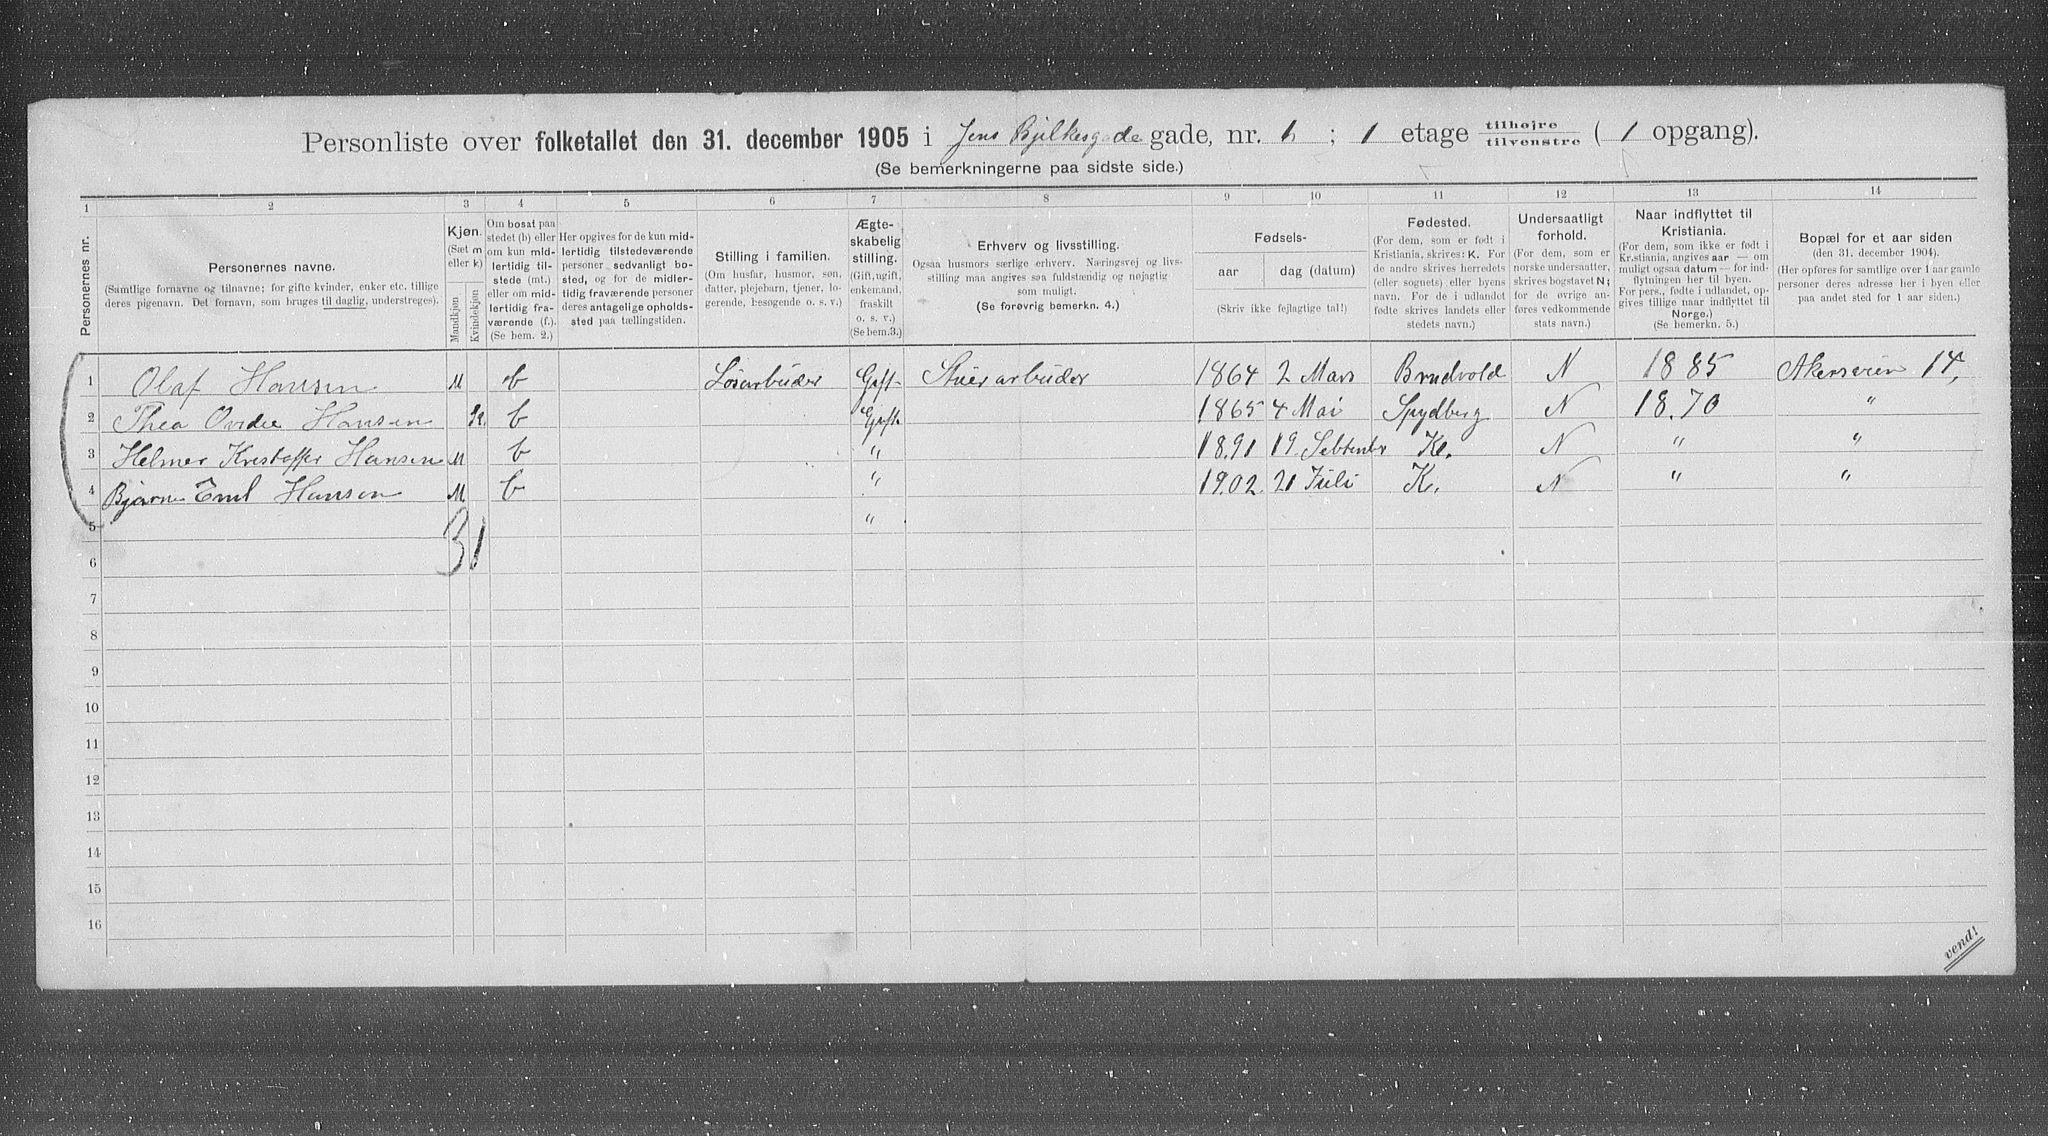 Personliste over folketallet den 31. december 1905 i Jens Bjelkesgade gade, nr. 6 ; 1 etage tilhøjre tilvenstre ( 1 opgang).
(Se bemerkningerne paa sidste side.)
1 2 3 4 5 6 7 8 9 10 11 12 13 14
Personernes nr.
Personernes navne.
(Samtlige fornavne og tilnavne; for gifte kvinder, enker etc. tillige
deres pigenavn. Det fornavn, som bruges til daglig, understreges).
Kjøn.
(Sæt m
eller k)
Mandkjøn
Kvindekjøn
Om bosat paa
stedet (b) eller
om kun mid-
lertidig til-
stede (mt.)
eller om mid-
lertidig fra-
værende (f.).
(Se bem. 2.)
Her opgives for de kun mid-
lertidig tilstedeværende
personer sedvanligt bo-
sted, og for de midler-
tidig fraværende personer
deres antagelige opholds-
sted paa tællingstiden.
Stilling i familien.
(Om husfar, husmor, søn,
datter, plejebarn, tjener, lo-
gerende, besøgende o. s. v.)
Ægte-
skabelig
stilling.
(Gift, ugift,
enkemand,
fraskilt
o. s. v.)
(Se bem.3.)
Erhverv og livsstilling.
Ogsaa husmors særlige erhverv. Næringsvej og livs-
stilling maa angives saa fuldstændig og nøjagtig
som muligt.
(Se forøvrig bemerkn. 4.)
Fødsels-
aar dag (datum)
(Skriv ikke fejlagtige tal!)
Fødested.
(For dem, som er født i
Kristiania, skrives: K. For
de andre skrives herredets
(eller sognets) eller byens
navn. For de i udlandet
fødte skrives landets eller
stedets navn.)
Undersaatligt
forhold.
(For dem, som er
norske undersaatter,
skrives bogstavet N;
for de øvrige an-
føres vedkommende
stats navn.)
Naar indflyttet til
Kristiania.
(For dem, som ikke er født i
Kristiania, angives aar — om
muligt ogsaa datum — for ind-
flytningen her til byen.
For pers., fødte i udlandet, op-
gives tillige naar indflyttet til
Norge.)
(Se bemerkn. 5.)
Bopæl for et aar siden
(den 31. december 1904).
(Her opføres for samtlige over 1 aar gamle
personer deres adresse her i byen eller
paa andet sted for 1 aar siden.)
1 Olaf Hansen M b Løsarbuder Gift Stuerarbuder 1864 2 Mars Brudvold N 1885 Akersveien 14,
2 Thea Ovidie Hansen K. b Gift 1865 4 Mai Spydberg N 18.70 "
3 Helmer Kristoffer Hansen M b " 18.91 19. Sebtember K. N " "
4 Bjarne Emil Hansen M b " 19.02 21 Juli K. N " "
5 "
3 1
6
7
8
9
10
11
12
13
14
15
16
vend!